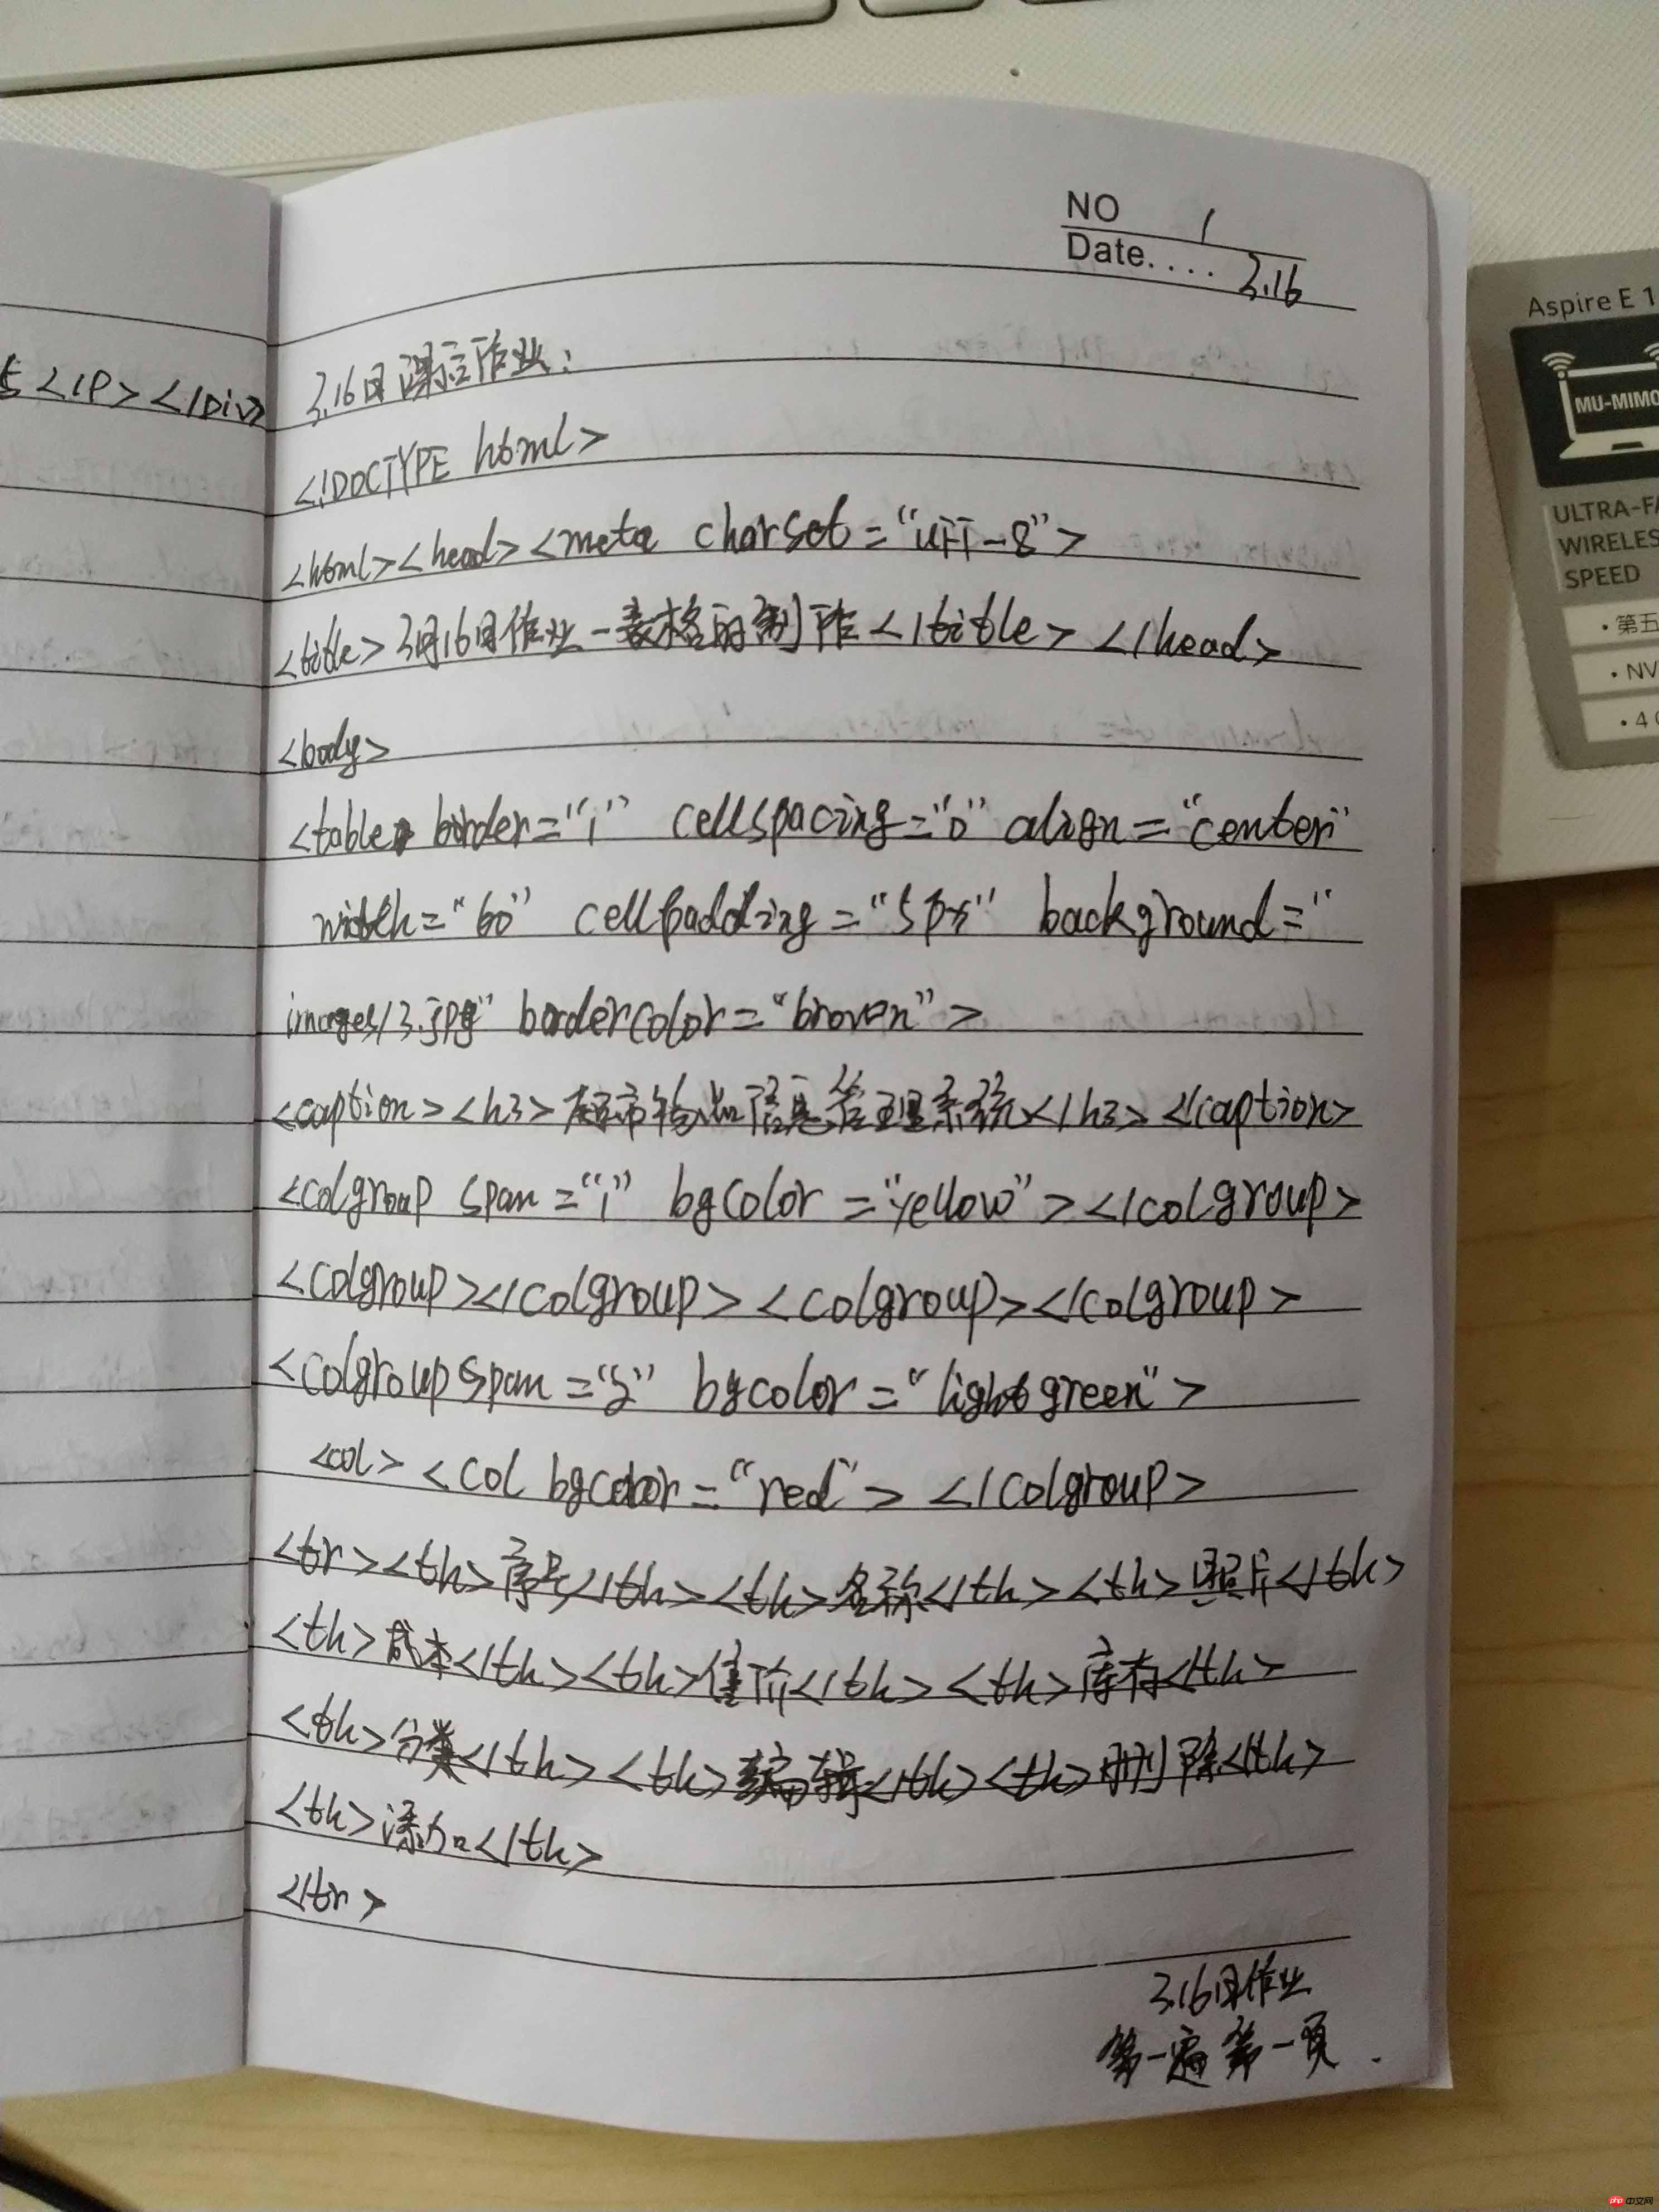 NO 1
Date.... 3.16
<IP> </Div>
3.16日课后作业:
<!DOCTYPE html>
<html><head><meta charset="UTF-8">
<title>3月16日作业-表格的制作</title></head>
<body>
<table border="1" cellspacing="0" align="center"
width="60" cellpadding="5px" background="
images/3.jpg" bordercolor="brown">
<caption><h3>超市输出信息管理系统</h3></caption>
<colgroup span="1" bgcolor="yellow"></colgroup>
<colgroup></colgroup><colgroup></colgroup>
<colgroup span="5" bgcolor="lightgreen">
<col><col bgcolor="red"></colgroup>
<tr><th>序号</th><th>名称</th><th>照片</th>
<th>成本</th><th>售价</th><th>库存</th>
<th>分类</th><th>编辑</th><th>删除</th>
<th>添加</th>
</tr>
3.16日作业
第一遍 第一页.
Aspire E 1
MU-MIMO
ULTRA-FA
WIRELES
SPEED
·第五
·NV
·4
php 中文网